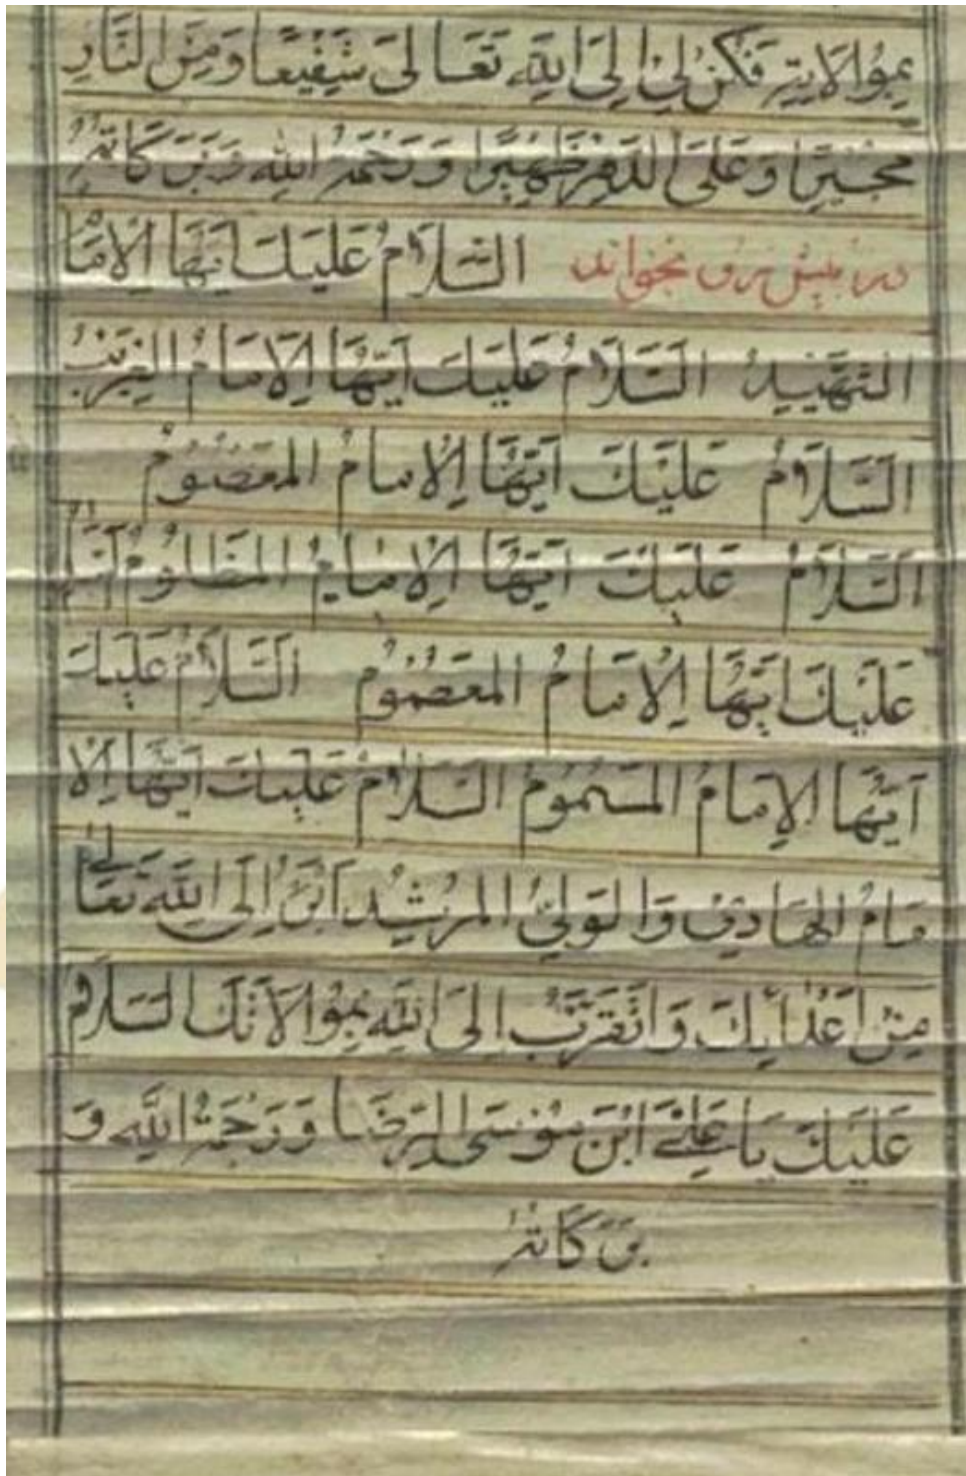 بِمُوالاتِهِ فَكُنْ لِي اِلَى اللهِ تَعَالىَ شَفِيعًا وَمِنَ النَّارِ
مُجِيرًا وَعَلَى الدَّهْرِ ظَهِيرًا وَرَحْمَةُ اللهِ وَبَرَكَاتُهُ
در پیش برو بخواند السَّلَامُ عَلَيْكَ اَيُّهَا الْاِمَا
الشَّهِيدُ السَّلَامُ عَلَيْكَ اَيُّهَا الْاِمَامُ الْغَرِيبُ
السَّلَامُ عَلَيْكَ اَيُّهَا الْاِمَامُ الْمَعْصُومُ
السَّلَامُ عَلَيْكَ اَيُّهَا الْاِمَامُ الْمَظْلُومُ السَّلَامُ
عَلَيْكَ اَيُّهَا الْاِمَامُ الْمَعْصُومُ السَّلَامُ عَلَيْكَ
اَيُّهَا الْاِمَامُ الْمَسْمُومُ السَّلَامُ عَلَيْكَ اَيُّهَا الْاِ
مَامُ الْهَادِي وَالْوَلِيُّ الْمُرْشِدُ اَبْرَءُ اِلَى اللهِ تَعَالى
مِنْ اَعْدَائِكَ وَاَتَقَرَّبُ اِلَى اللهِ بِمُوَالاتِكَ السَّلَامُ
عَلَيْكَ يَا عَلِيَّ ابْنَ مُوسَى الرِّضَا وَرَحْمَةُ اللهِ وَ
بَرَكَاتُهُ